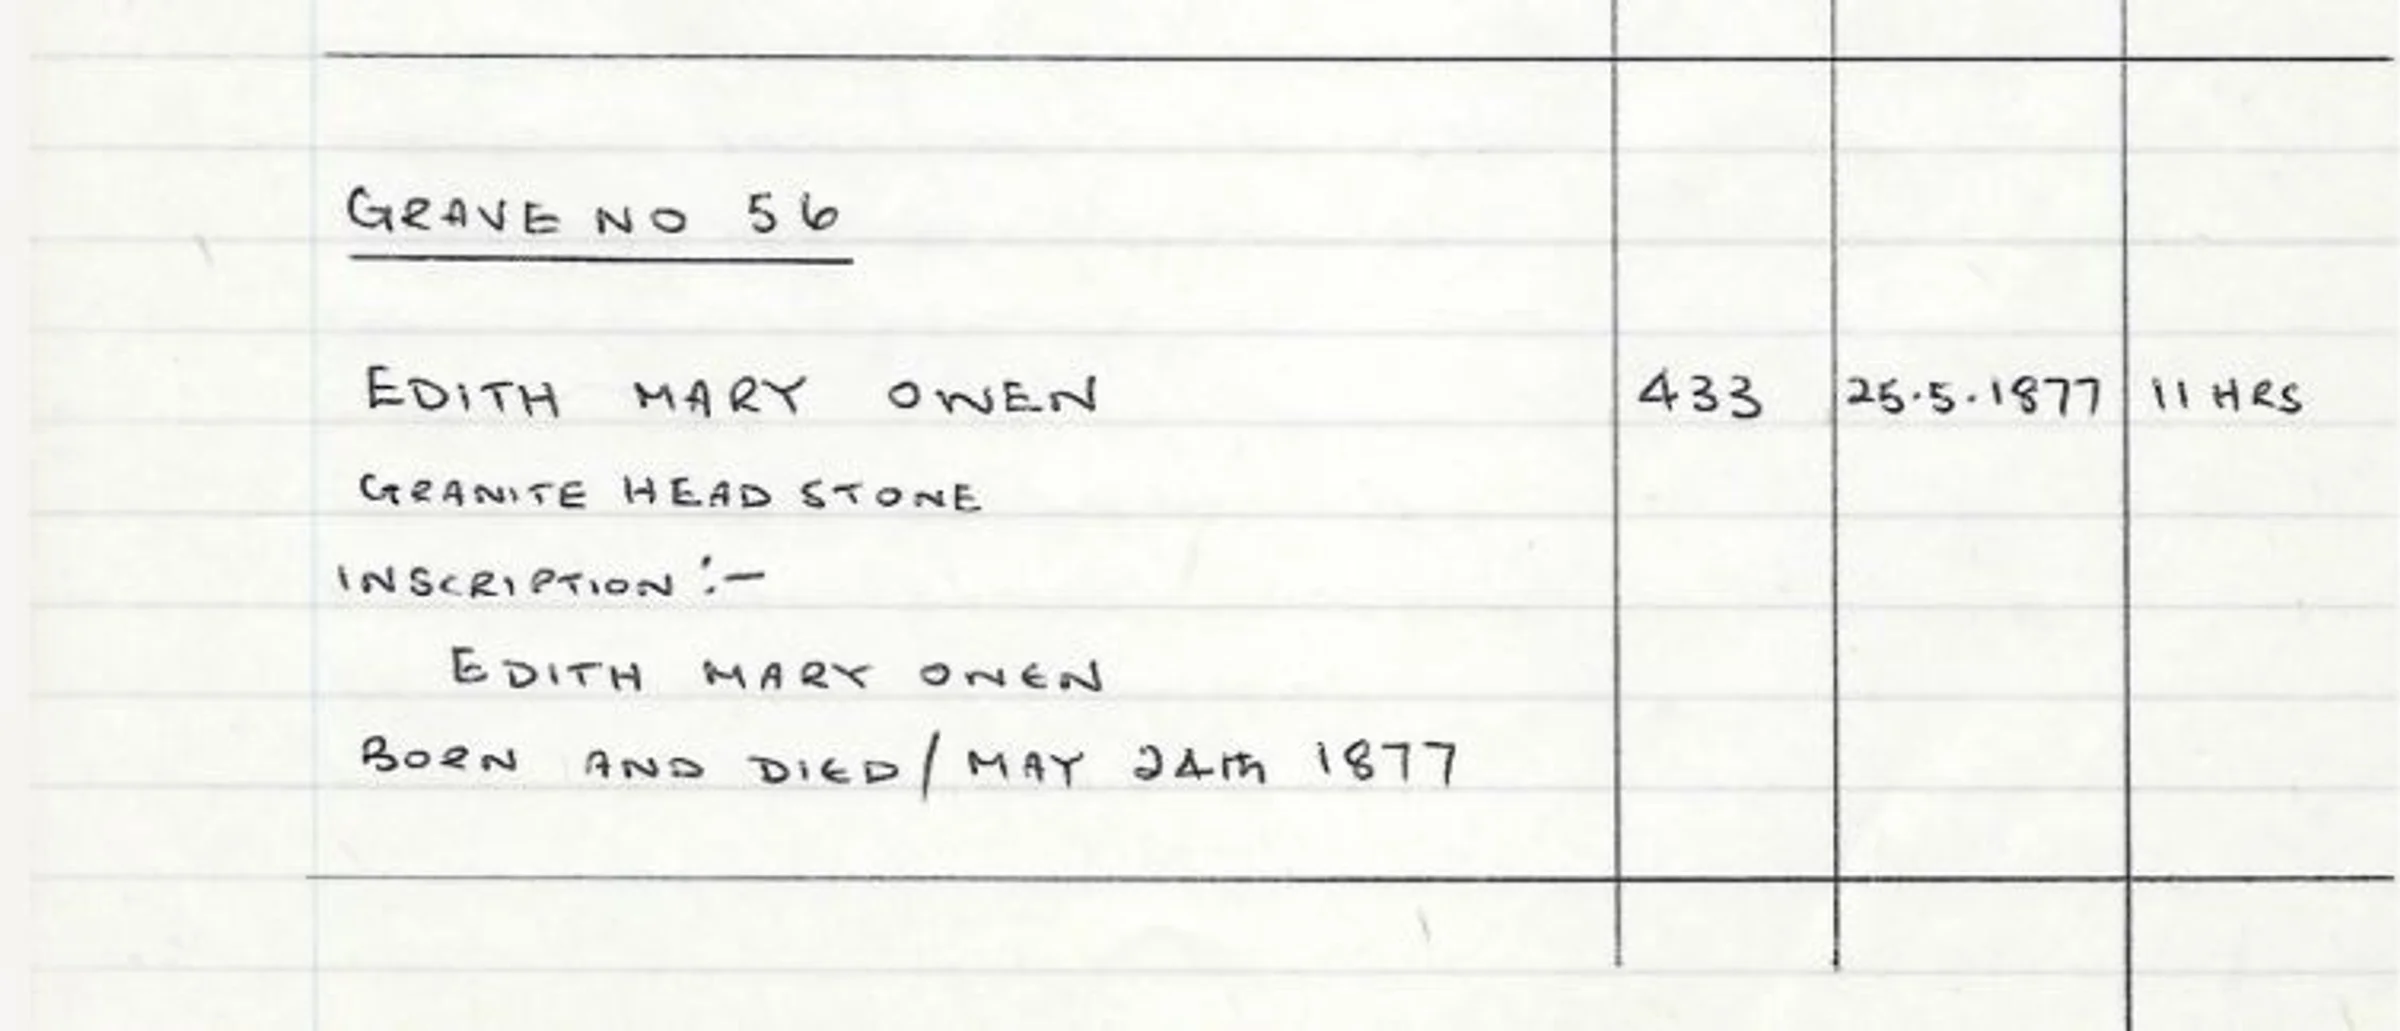 GRAVE NO 56
EDITH MARY OWEN 433 25.5.1877 11 HRS
GRANITE HEAD STONE
INSCRIPTION :-
EDITH MARY OWEN
BORN AND DIED / MAY 24th 1877